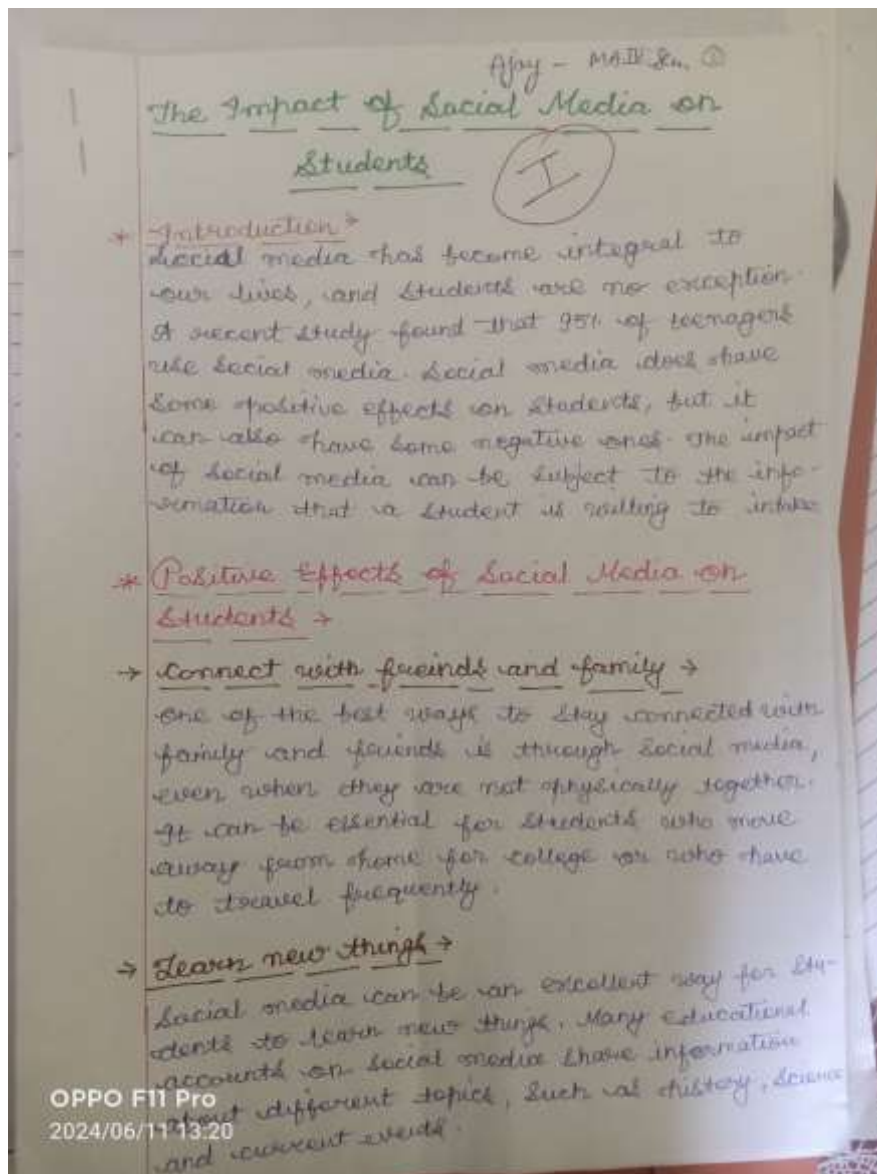 Ajay - MA IV Sem ①
The Impact of Social Media on
Students
I
* Introduction →
Social media has become integral to
our lives, and students are no exception.
A recent study found that 95% of teenagers
use social media. Social media does have
some positive effects on students, but it
can also have some negative ones. The impact
of social media can be subject to the info-
rmation that a student is willing to intake
* Positive Effects of Social Media on
Students →
→ Connect with freinds and family →
One of the best ways to stay connected with
family and friends is through social media,
even when they are not physically together.
It can be essential for students who move
away from home for college or who have
to travel frequently.
→ Learn new things →
Social media can be an excellent way for stu-
dents to learn new things. Many educational
accounts on social media share information
about different topics, such as history, science
and current events.
OPPO F11 Pro
2024/06/11 13:20